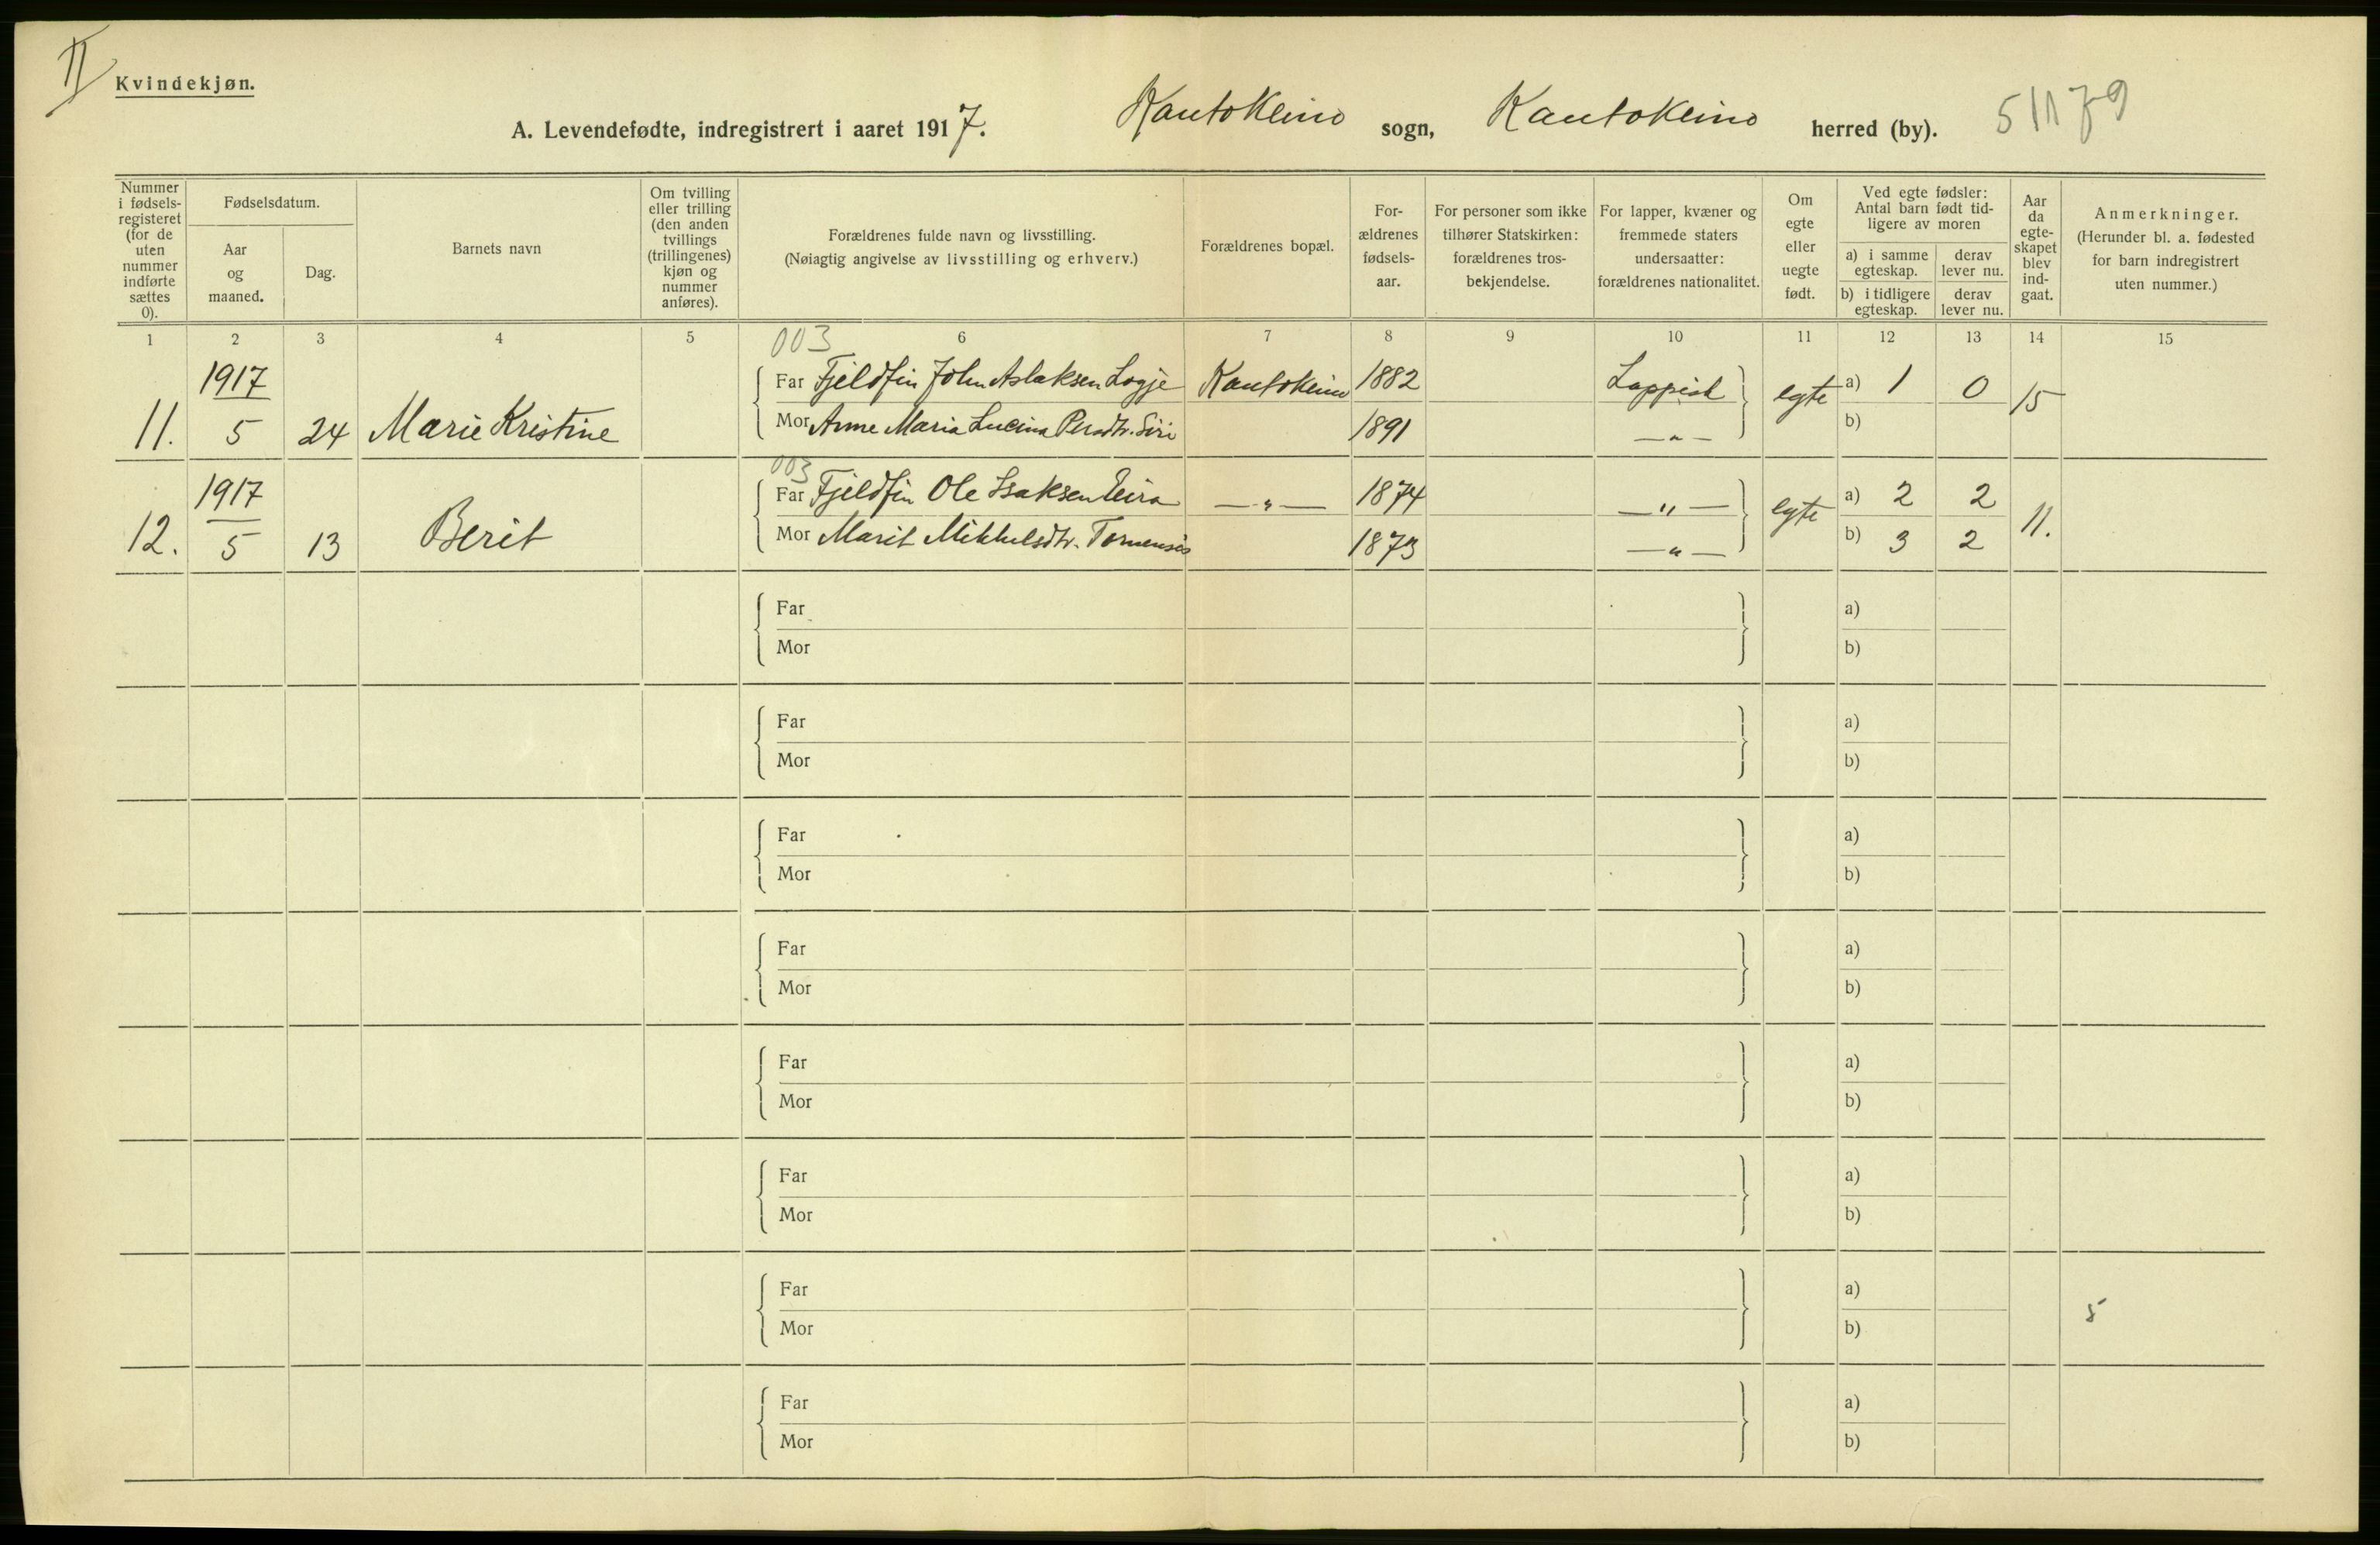 II
Kvindekjøn.
A. Levendefødte, indregistrert i aaret 1917. Kautokeino sogn, Kautokeino herred (by). 51179
Nummer i fødsels-registeret (for de uten nummer indførte sættes 0).
Fødselsdatum.
Aar og maaned.
Dag.
Barnets navn
Om tvilling eller trilling (den anden tvillings (trillingenes) kjøn og nummer anføres).
Forældrenes fulde navn og livsstilling.
(Nøiagtig angivelse av livsstilling og erhverv.)
Forældrenes bopæl.
For-ældrenes fødsels-aar.
For personer som ikke tilhører Statskirken: forældrenes tros-bekjendelse.
For lapper, kvæner og fremmede staters undersaatter: forældrenes nationalitet.
Om egte eller uegte født.
Ved egte fødsler: Antal barn født tid-ligere av moren
a) i samme egteskap.
derav lever nu.
b) i tidligere egteskap.
derav lever nu.
Aar da egte-skapet blev ind-gaat.
Anmerkninger.
(Herunder bl. a. fødested for barn indregistrert uten nummer.)
1 2 3 4 5 6 7 8 9 10 11 12 13 14 15
003
1917 Far Fjeldfin John Aslaksen Logje Kautokeino 1882 Lappisk egte a) 1 0 15
11. 5 24 Marie Kristine Mor Anne Maria Lucina Persdtr. Siri 1891 —"— b)
003
1917 Far Fjeldfin Ole Isaksen Eira —"— 1874 —"— egte a) 2 2 11.
12. 5 13 Berit Mor Marit Mikkelsdtr. Tornensis 1873 —"— b) 3 2
Far a)
Mor b)
Far a)
Mor b)
Far a)
Mor b)
Far a)
Mor b)
Far a)
Mor b)
Far a)
Mor b)
Far a)
Mor b)
Far a)
Mor b)